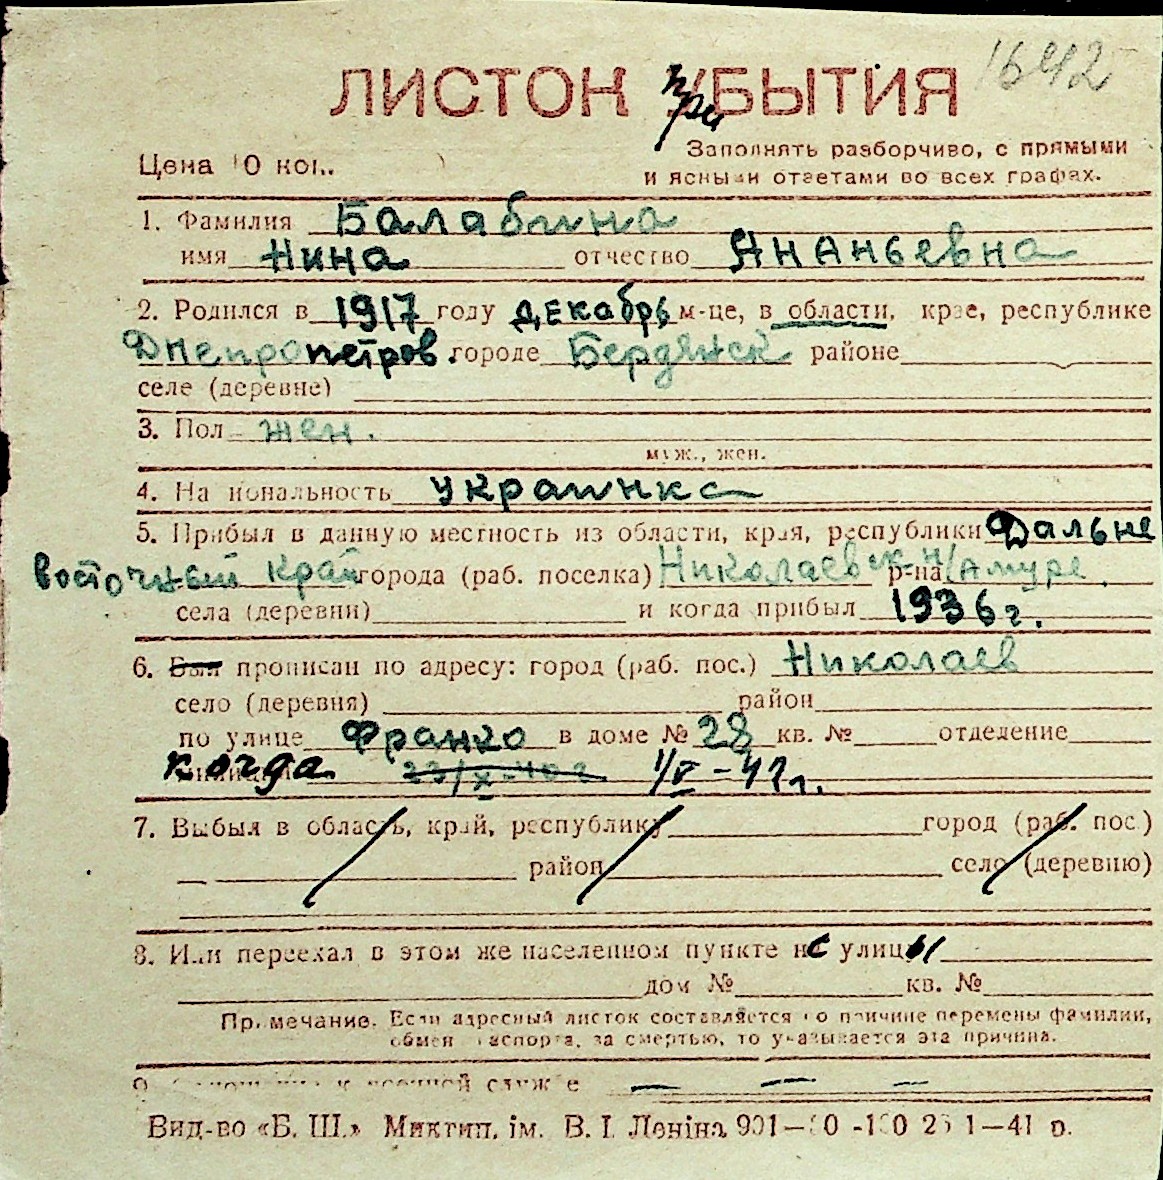 1642
ЛИСТОК при УБЫТИЯ
Цена 10 коп.
Заполнять разборчиво, с прямыми
и ясными ответами во всех графах.
1. Фамилия Балабина
имя Нина отчество Ананьевна
2. Родился в 1917 году декабрь м-це, в области, крае, республике
Днепропетров. городе Бердянск районе
селе (деревне)
3. Пол жен.
муж., жен.
4. Национальность украинка
5. Прибыл в данную местность из области, края, республики Дальне
восточный край города (раб. поселка) Николаевск н/Амуре. р-на
села (деревни) и когда прибыл 1936 г.
6. Был прописан по адресу: город (раб. пос.) Николаев
село (деревня) район
по улице Франко в доме № 28 кв. № отделение
когда 23/X-40 г. 1/V-41 г.
7. Выбыл в область, край, республику город (раб. пос.)
район село (деревню)
8. Или переехал в этом же населенном пункте с улицы
дом № кв. №
Примечание. Если адресный листок составляется по причине перемены фамилии,
обмен паспорта, за смертью, то указывается эта причина.
9. к военной службе — — —
Вид-во «Б. Ш.» Миктип. ім. В. І. Леніна 901— 1—41 р.